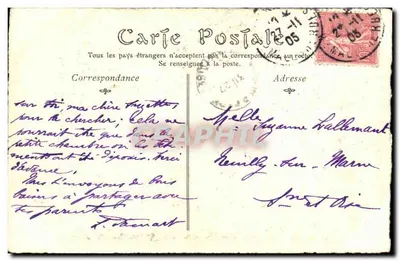 Carte Postale
Tous les pays étrangers n'acceptent pas la correspondance au recto.
Se renseigner à la poste.
Correspondance
Adresse
27-11
05
sur toi, ma chère Suzette,
pour te chercher; Cela ne
pourrait être que dans
petite chambre où
ment ont été déposés. Merci
d'avance,
Nous t'envoyons de bons
baisers à partager avec
tes parents
Melle
Suzanne Lallemant
Neuilly-sur-Marne
Sne et Oise